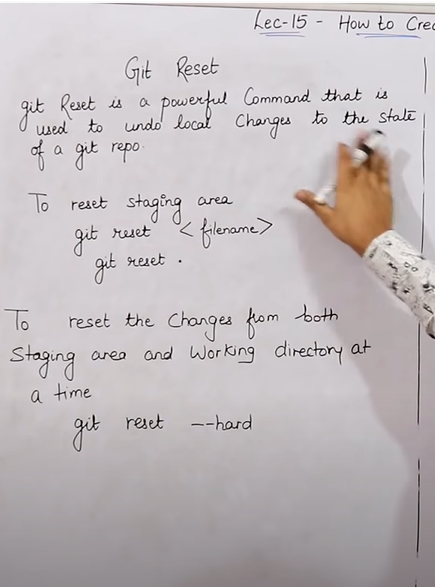 Lec-15 - How to Crea
Git Reset
git Reset is a powerful Command that is
used to undo local Changes to the state
of a git repo.
To reset staging area
git reset <filename>
git reset .
To reset the Changes from both
Staging area and Working directory at
a time
git reset --hard